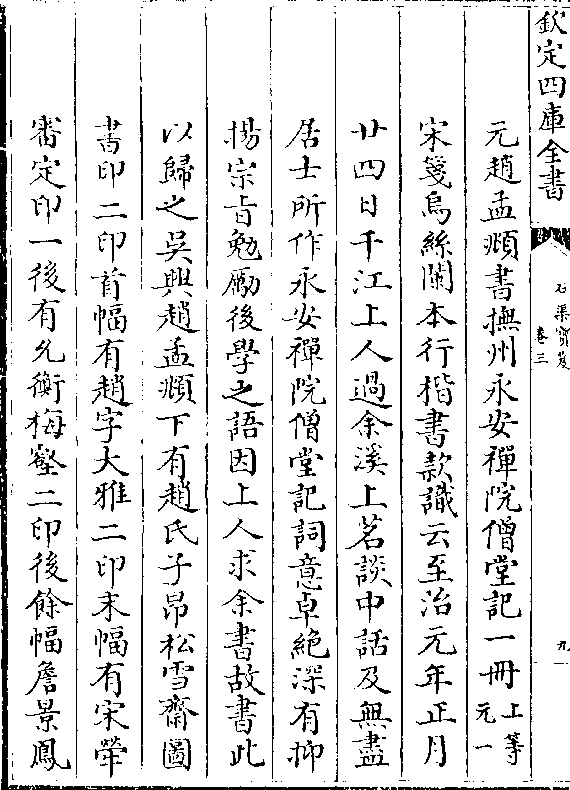 欽定四庫全書
石渠寶笈
卷三
九
元趙孟頫書撫州永安禪院僧堂記一冊上等元一
宋箋烏絲闌本行楷書款識云至治元年正月
廿四日千江上人過余溪上茗談中話及無盡
居士所作永安禪院僧堂記詞意卓絕深有抑
揚宗旨勉勵後學之語因上人求余書故書此
以歸之吳興趙孟頫下有趙氏子昂松雪齋圖
書印二印首幅有趙字大雅二印末幅有宋犖
審定印一後有允衡梅壑二印後餘幅詹景鳳